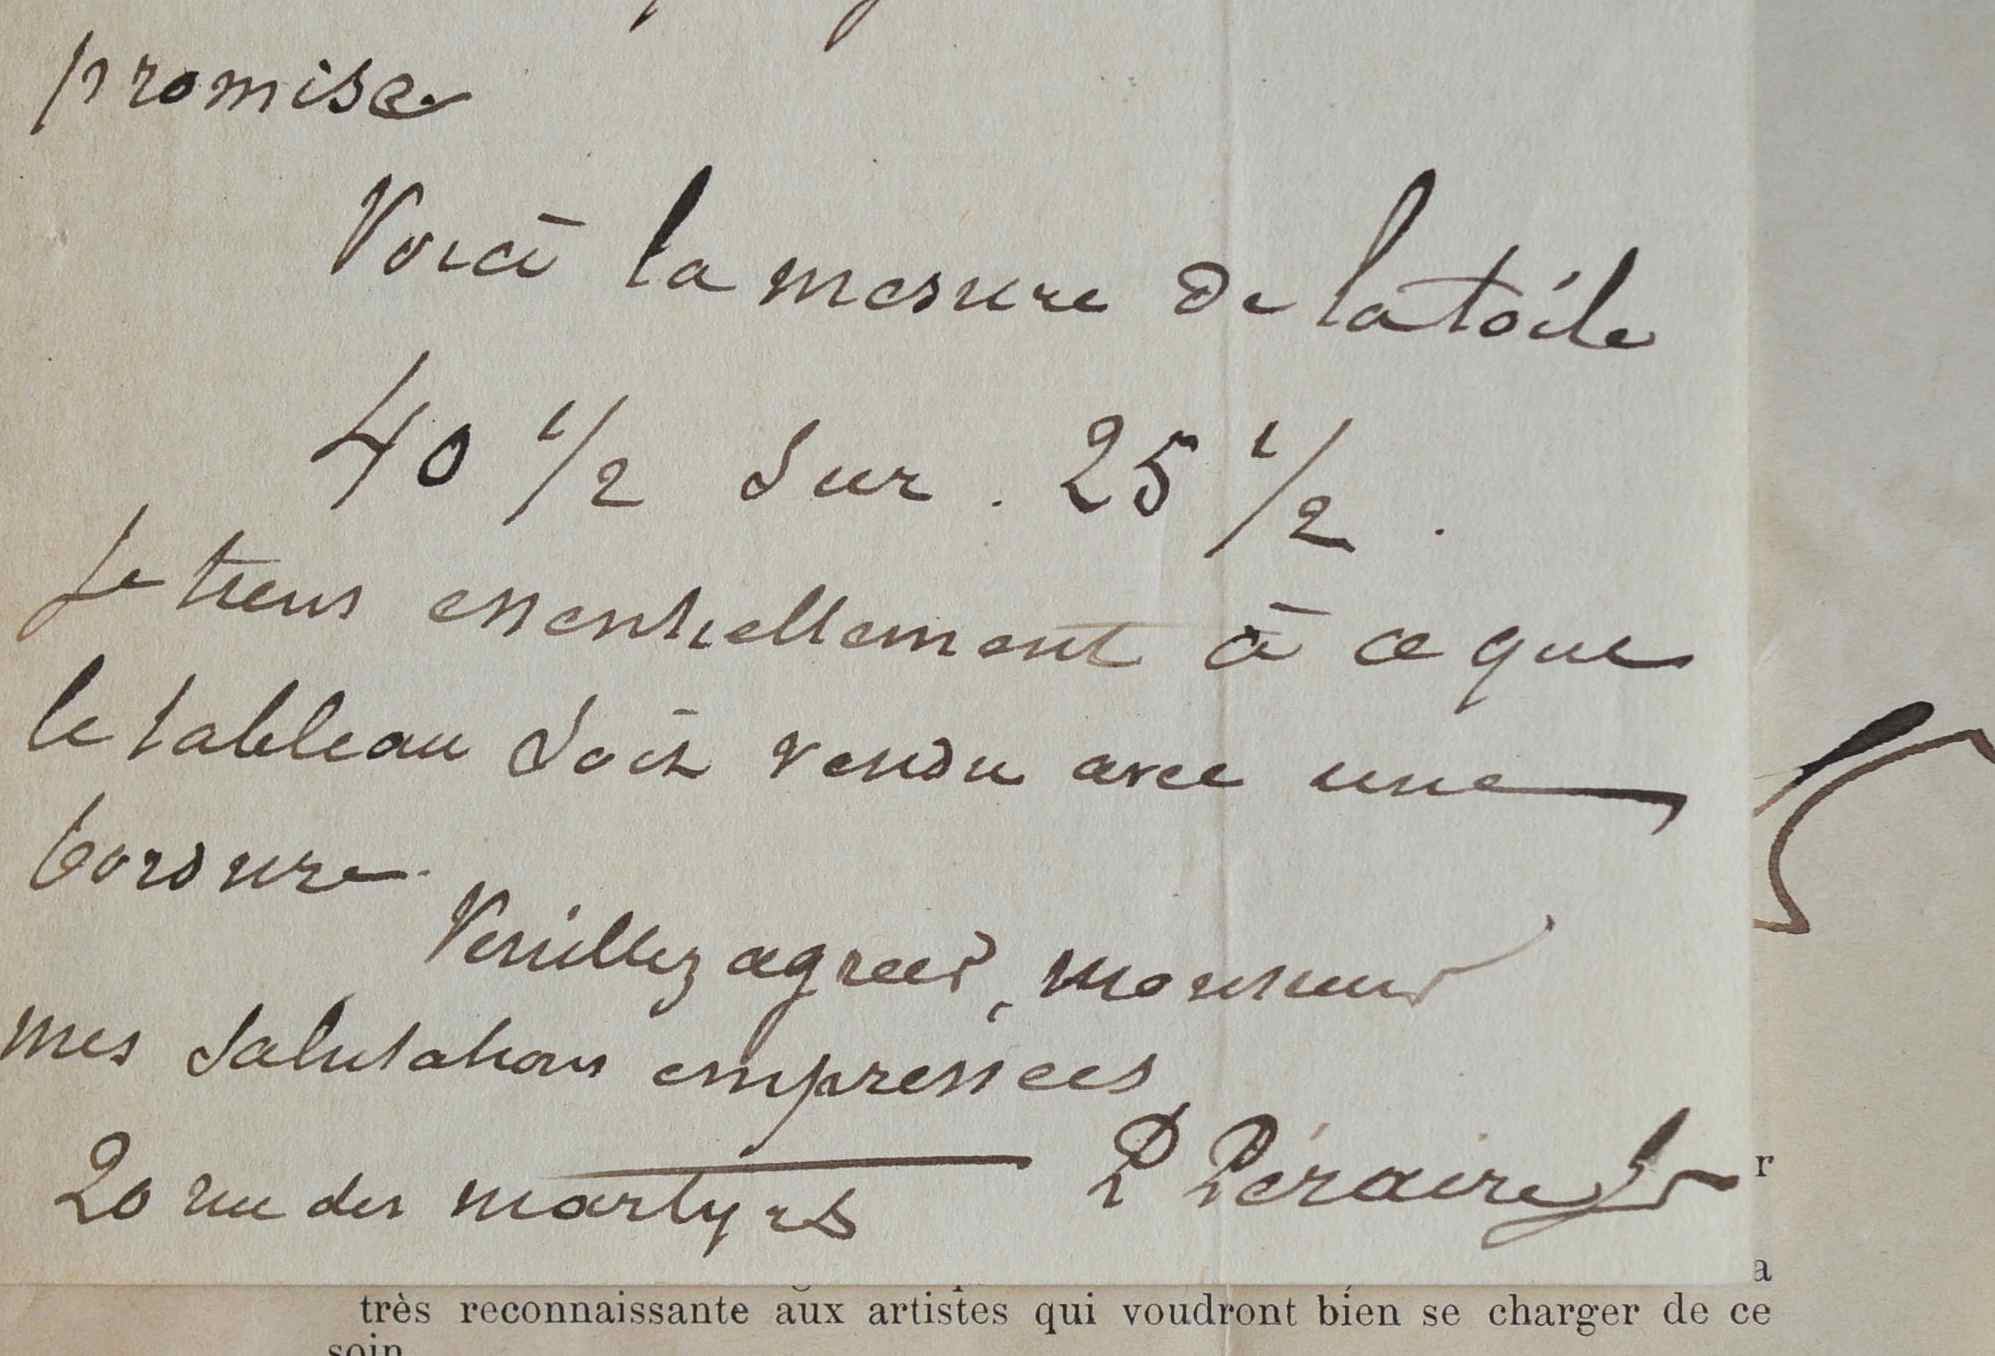 promise
Voici la mesure de la toile
40 1/2 sur. 25 1/2.
Je tiens essentiellement à ce que
le tableau soit vendu avec une
bordure.
Veuillez agréer, monsieur
mes salutations empressées
20 rue des martyrs P Péraire
r
a
très reconnaissante aux artistes qui voudront bien se charger de ce
soin